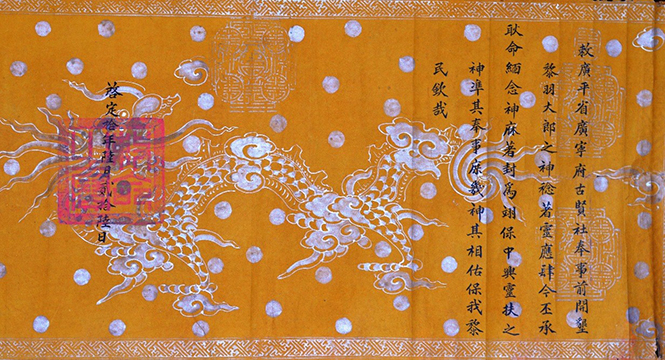 敕廣平省廣寧府古賢社奉事前開墾
黎羽大郎之神稔著靈應肆今丕承
耿命緬念神庥著封爲翊保中興靈扶之
神準其奉事庶幾神其相佑保我黎
民欽哉
啓定拾年陸月貳拾陸日